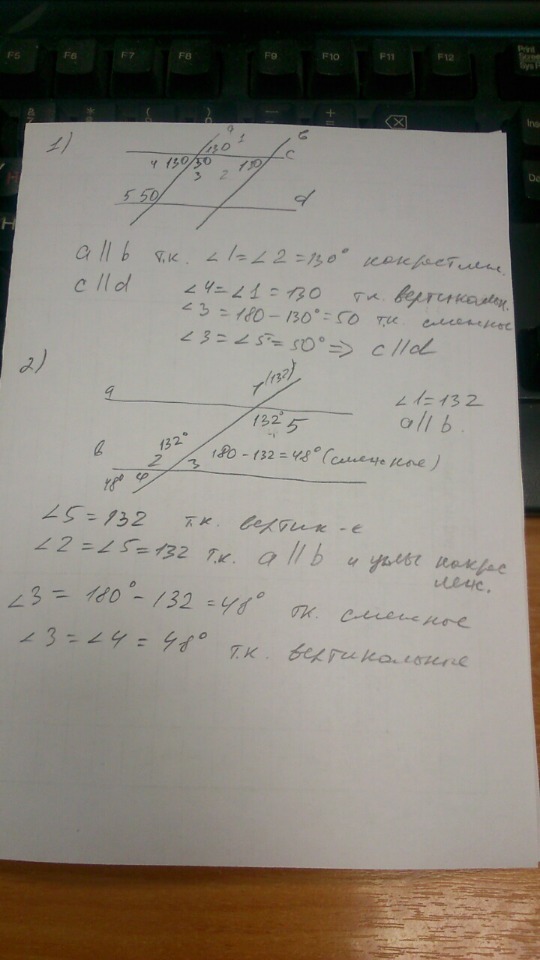 F5 F6 F7 F8 F9 F10 F11 F12 Print
1)
a 1 в
130 c
4 130 50 130
3 2
5 50 d
a || b т.к. ∠1=∠2=130° накрест леж.
c || d ∠4=∠1=130 т.к. вертикальн.
∠3=180-130°=50 т.к. смежные
∠3=∠5=50° => c || d
2)
1 (132)
a ∠1=132
132° 5 a || b.
132°
в 2 3 180-132=48° (смежные)
48° 4
∠5=132 т.к. вертик-е
∠2=∠5=132 т.к. a || b и углы накрес
леж.
∠3= 180°-132=48° тк. смежные
∠3=∠4=48° т.к. вертикальные